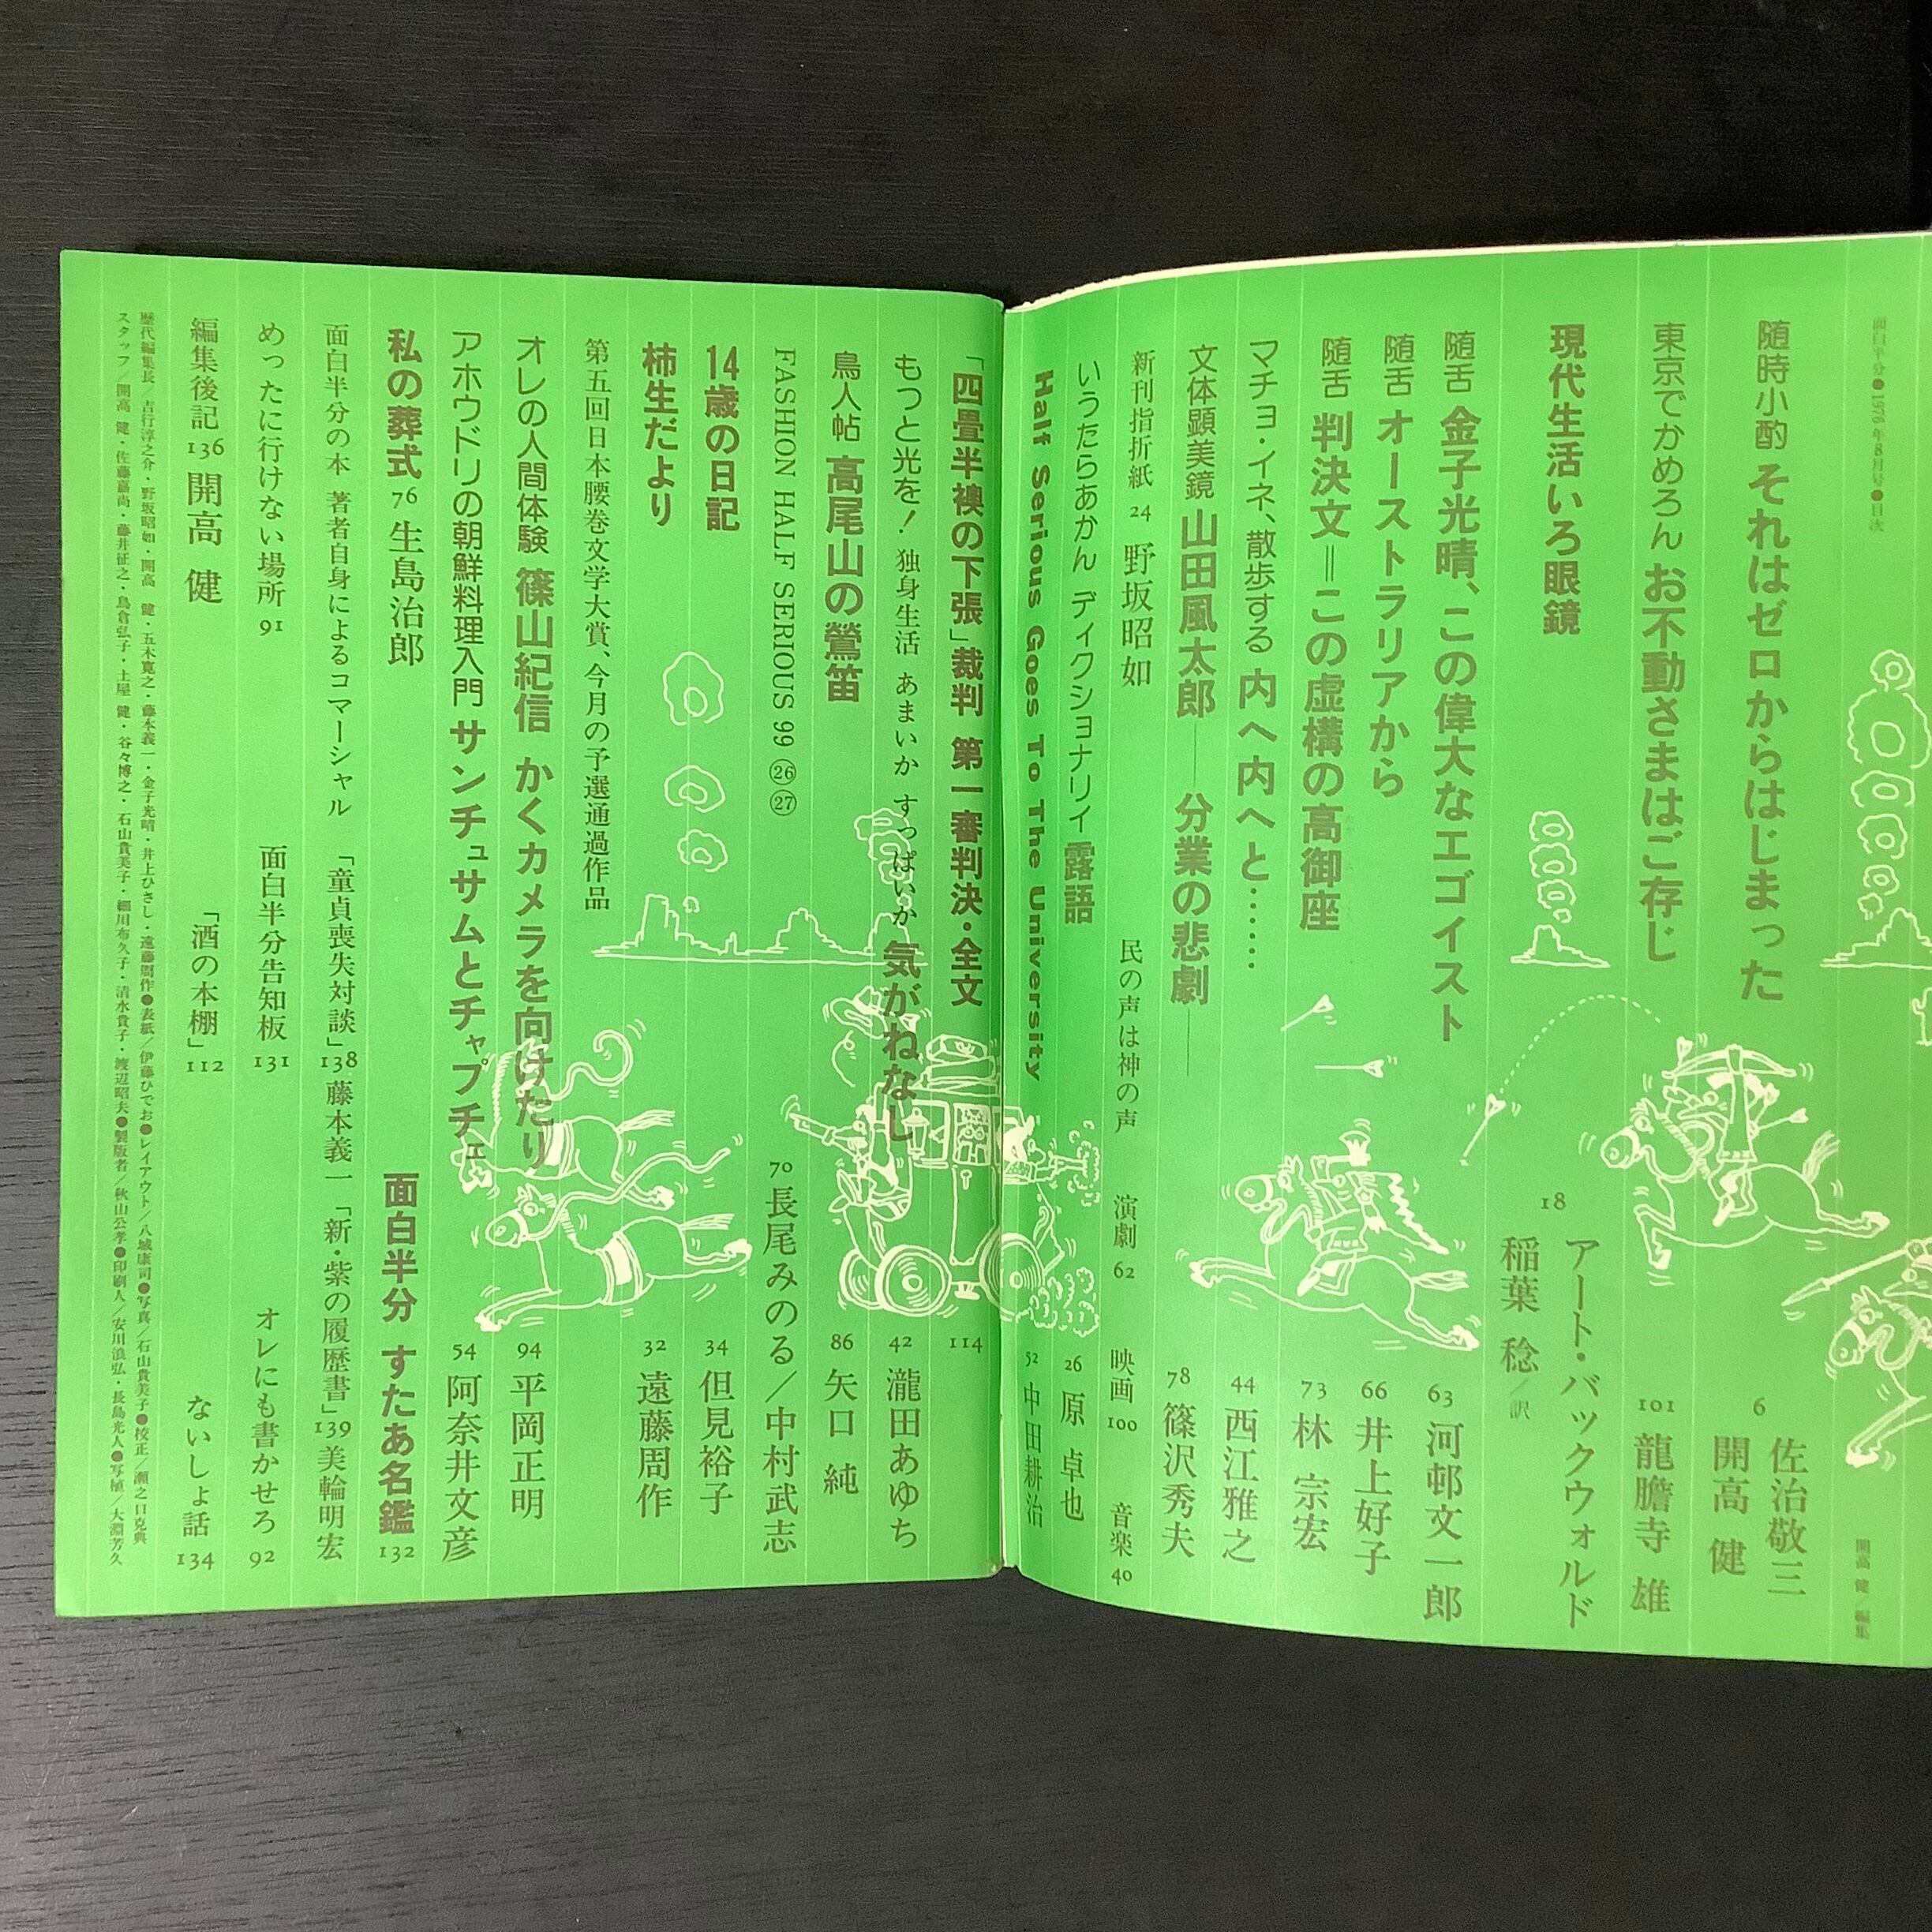 面白半分●1976年8月号●目次
開高 健／編集
随時小酌 それはゼロからはじまった 6 佐治敬三 開高 健
東京でかめろん お不動さまはご存じ 101 龍膽寺 雄
現代生活いろ眼鏡 18 アート・バックウォルド 稲葉 稔／訳
随舌 金子光晴、この偉大なエゴイスト 63 河邨文一郎
随舌 オーストラリアから 66 井上好子
随舌 判決文＝この虚構の高御座 73 林 宗宏
マチョ・イネ、散歩する 内へ内へと…… 44 西江雅之
文体顕美鏡 山田風太郎——分業の悲劇—— 78 篠沢秀夫
新刊指折紙 24 野坂昭如 民の声は神の声 演劇 62 映画 100 音楽 40
いうたらあかん ディクショナリィ 露語 26 原 卓也
Half Serious Goes To The University 52 中田耕治
「四畳半襖の下張」裁判 第一審判決・全文 114
もっと光を！ 独身生活 あまいか すっぱいか 気がねなし 42 瀧田あゆち
鳥人帖 高尾山の鶯笛 86 矢口 純
FASHION HALF SERIOUS 99 ㉖ ㉗ 70 長尾みのる／中村武志
14歳の日記 34 但見裕子
柿生だより 32 遠藤周作
第五回日本腰巻文学大賞、今月の予選通過作品
オレの人間体験 篠山紀信 かくカメラを向けたり 94 平岡正明
アホウドリの朝鮮料理入門 サンチュサムとチャプチェ 54 阿奈井文彦
私の葬式 76 生島治郎 面白半分 すたあ名鑑 132
面白半分の本 著者自身によるコマーシャル 「童貞喪失対談」138 藤本義一 「新・紫の履歴書」139 美輪明宏
めったに行けない場所 91 面白半分告知板 131 オレにも書かせろ 92
編集後記 136 開高 健 「酒の本棚」112 ないしょ話 134
歴代編集長 吉行淳之介・野坂昭如・開高 健・五木寛之・藤本義一・金子光晴・井上ひさし・遠藤周作●表紙／伊藤ひでお●レイアウト／八城康司●写真／石山貴美子●校正／瀬之口克典
スタッフ／開高 健・佐藤嘉尚・藤井征之・鳥倉弘子・土屋 健・谷々博之・石山貴美子・細川布久子・清水貴子・渡辺昭夫●製版者／秋山公孝●印刷人／安川浪弘・長島光人●写植／大淵芳久